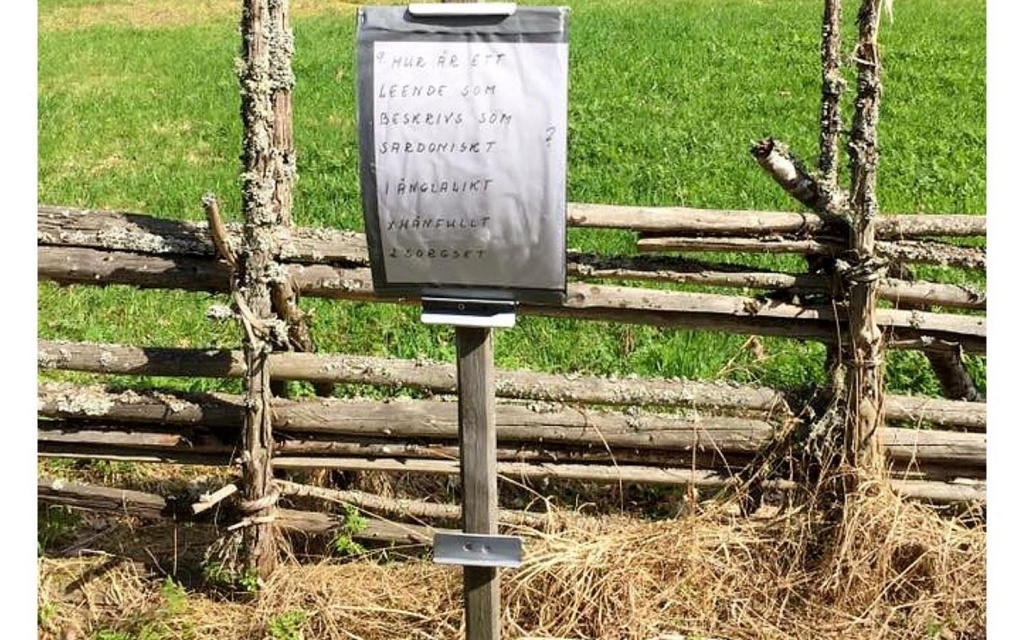 9. HUR ÄR ETT
LEENDE SOM
BESKRIVS SOM
SARDONISKT ?
1 ÄNGLALIKT
X HÅNFULLT
2 SORGSET